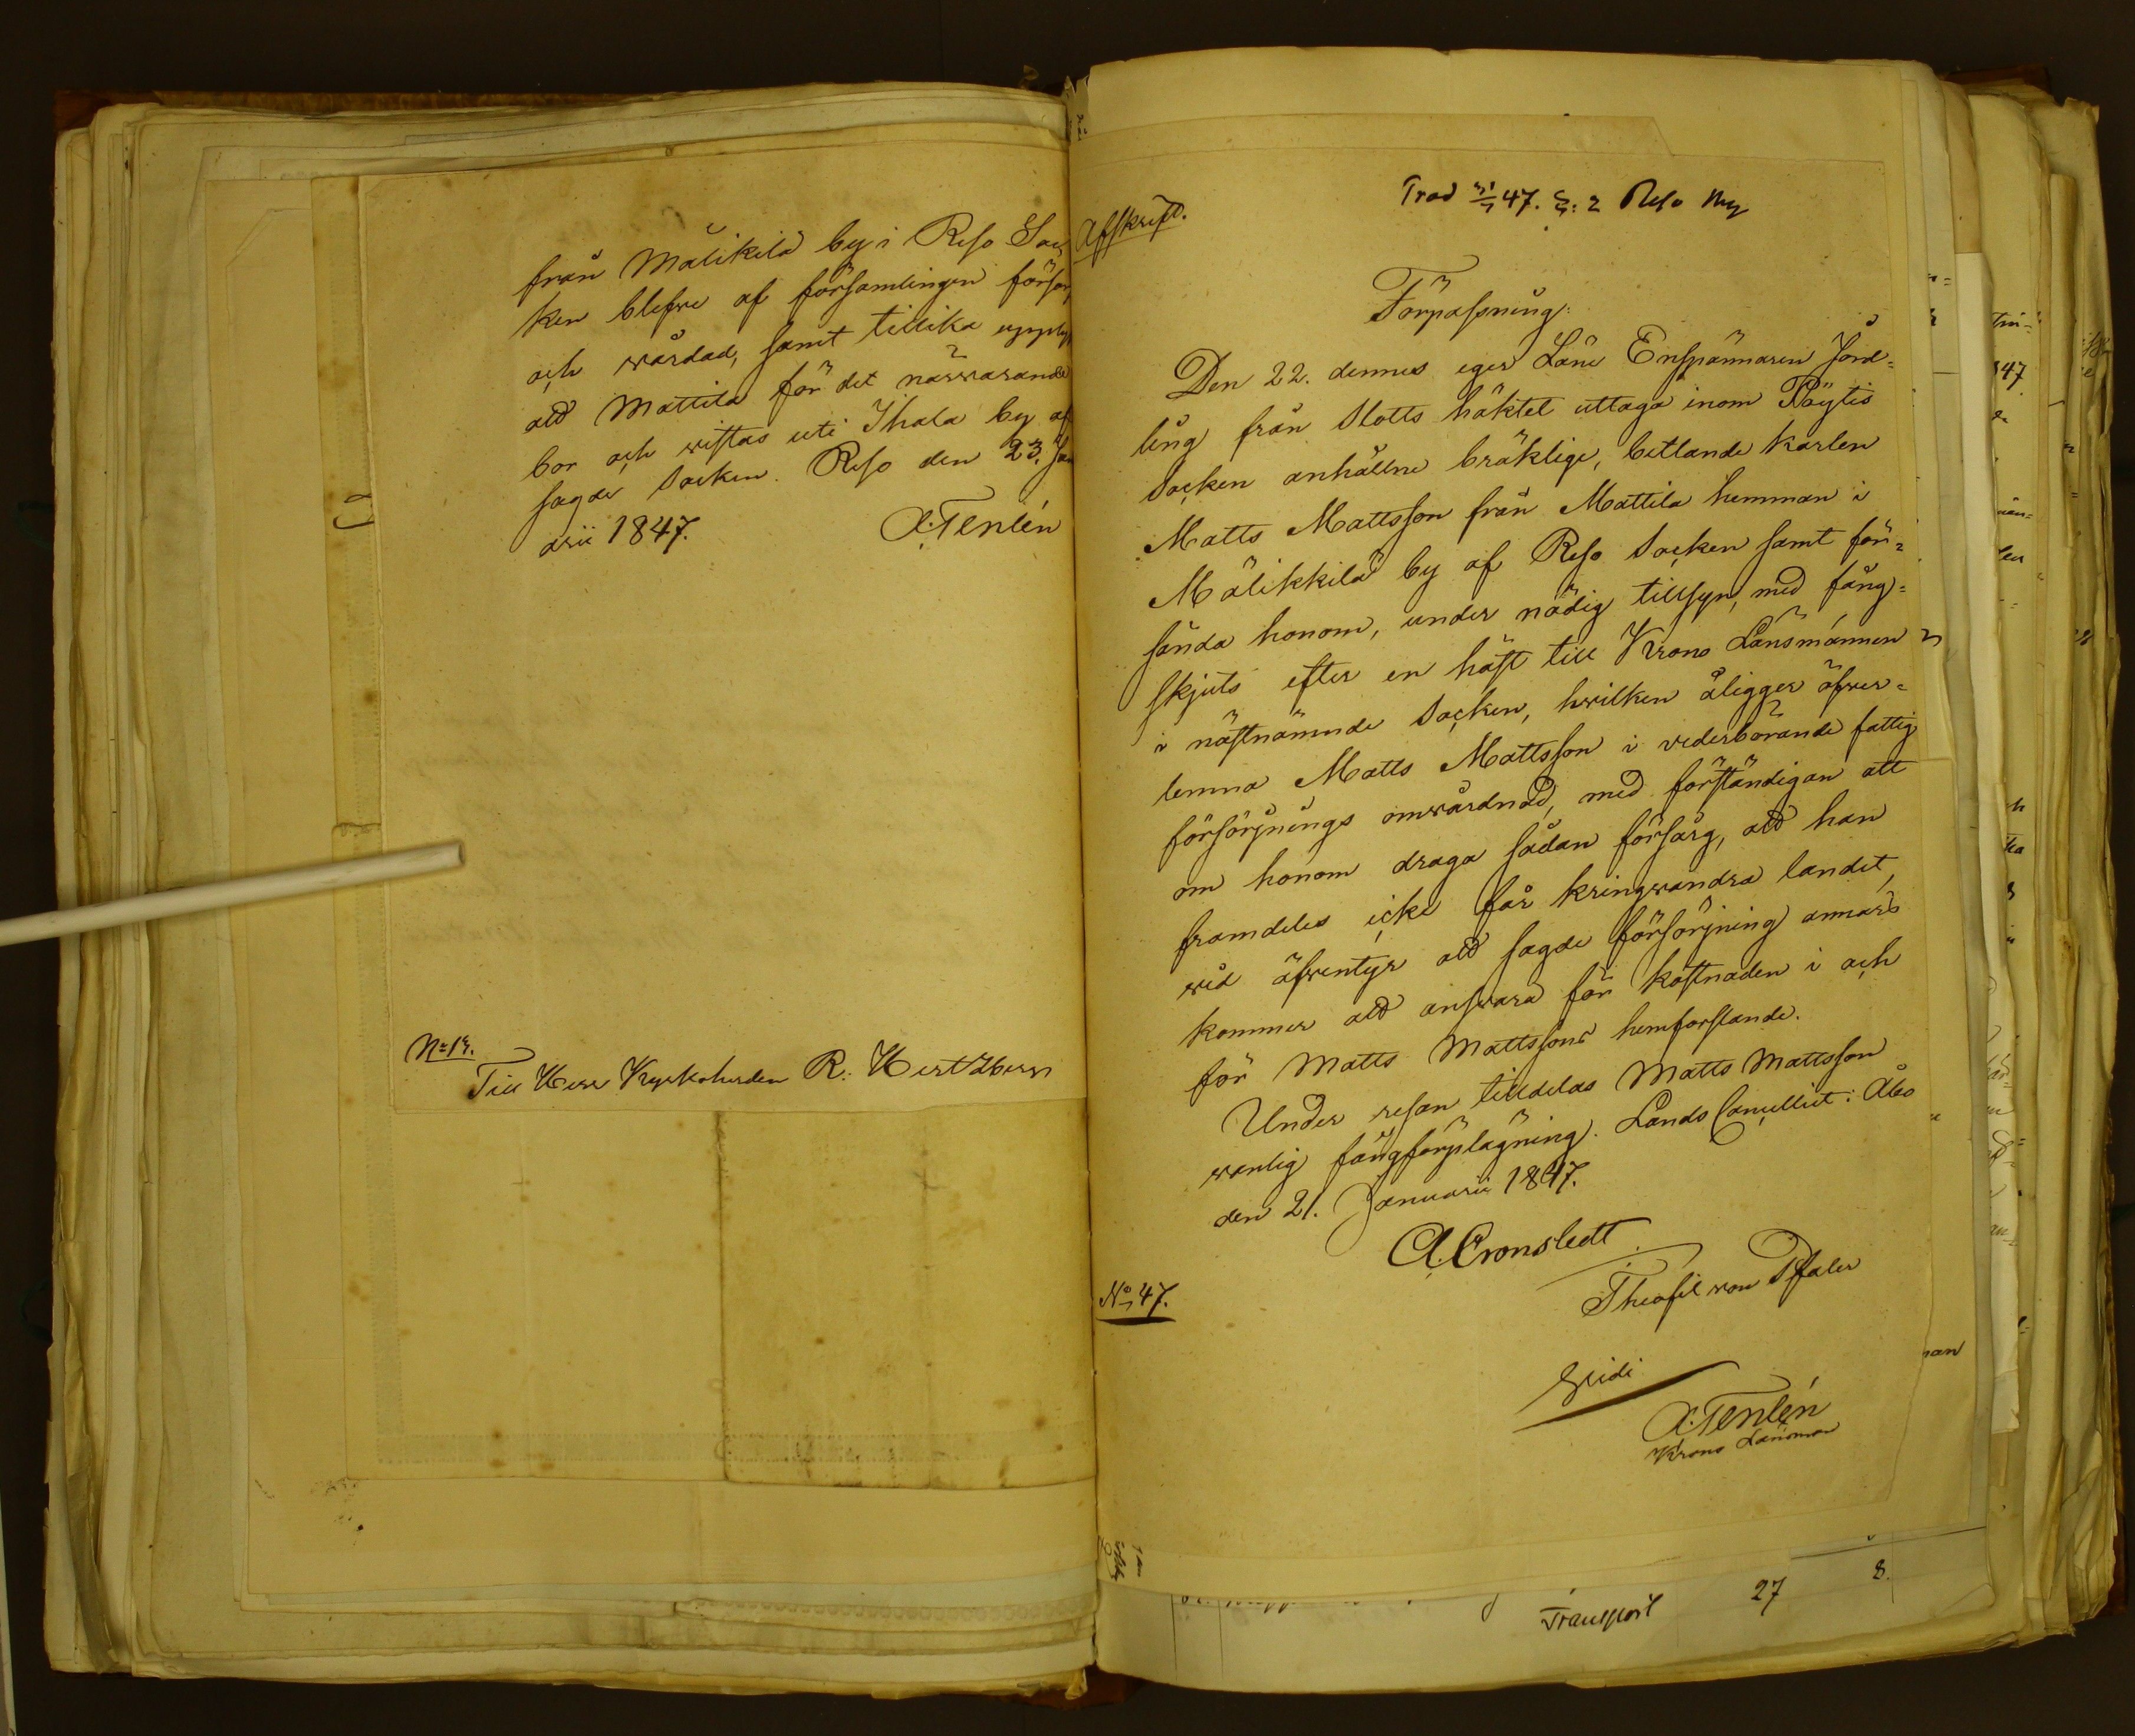 från Mälikilä by i Reso Soc
ken blefve af församlingen försör
och wårdad, samt tillika upply
att Mattila för det närwarande
bor och wistas uti Ihala by af
sagde Socken. Reso den 23. Janu
arii 1847.
A. Tenlén
No 14.
Till Herr Kyrkoherden R. Hertzberg
Afskrift.
47. Reso
Förpassning:
Den 22. dennes eger Läns Enspännaren Jord-
ling från Slotts häktet uttaga inom Pöytis
Socken anhållne bräklige, betlande karlen
Matts Mattsson från Mattila hemman i
Mälikkilä by af Reso Socken samt för-
sända honom, under nödig tillsyn, med fång-
skjuts efter en häst till Krono Länsmannen
i nästnämnde Socken, hwilken åligger öfwer-
lemna Matts Mattsson i vederbörande fattig
försörjnings omwårdnad, med förständigan att
om honom draga sådan försorg, att han
framdeles icke får kringwandra landet,
wid äfwentyr att sagde försörjning annars
kommer att answara för kostnaden i och
för Matts Mattssons hemforslande.
Under resan tilldelas Matts Mattsson
wanlig fångförplägning. Lands Cancelliet i Åbo
den 21. Januarii 1847.
A. Cronstedt
Theofil von Pfaler
No 47.
Vidi
A. Tenlén
Krono Länsman
Transport 27 8.